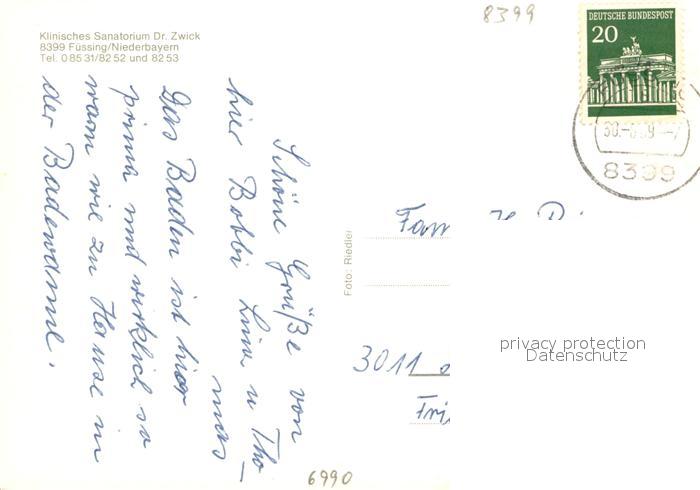 8399
Klinisches Sanatorium Dr. Zwick
8399 Füssing/Niederbayern
Tel. 0 85 31/82 52 und 82 53
DEUTSCHE BUNDESPOST
20
8399
Schöne Grüße von
hier Bobbi Lina u Tho-
mas
Das Baden ist hier
prima und wirklich so
warm wie zu Hause in
der Badewanne.
Foto: Riedler
Fam
3011
privacy protection
Datenschutz
6990